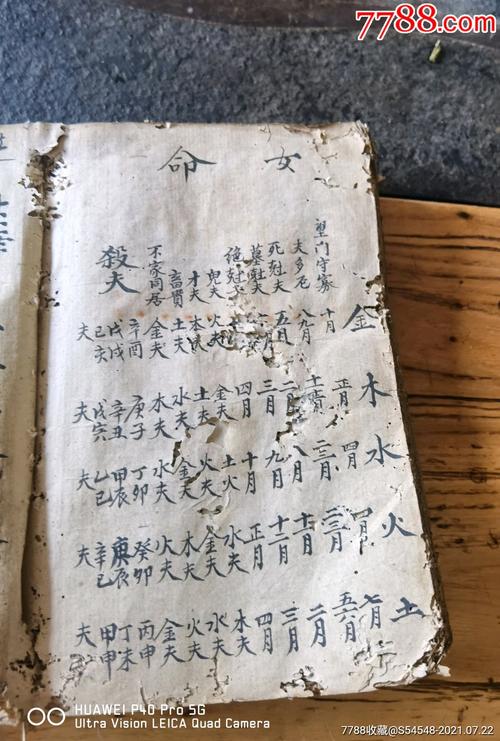 7788.com
女命
望門守寡
夫多厄
死尅夫
墓尅夫
絕尅夫
鬼夫
才夫
不家同居
殺夫
金 十月 八九月 五月 火夫 木夫 土夫 金夫 辛酉 戊戌 己亥 夫
木 正月 二月 三月 四月 金夫 土夫 水夫 木夫 庚子 辛丑 戊寅 夫
水 四月 二三月 八月 九月 十月 土火 火夫 金夫 水夫 丁卯 甲辰 乙巳 夫
火 十月 十二月 正月 水夫 金夫 木夫 火夫 癸卯 庚辰 辛巳 夫
土 七月 五六月 二月 三月 四月 木夫 水夫 火夫 金夫 丙申 丁未 甲申 夫
HUAWEI P40 Pro 5G
Ultra Vision LEICA Quad Camera
7788收藏@S54548-2021.07.22